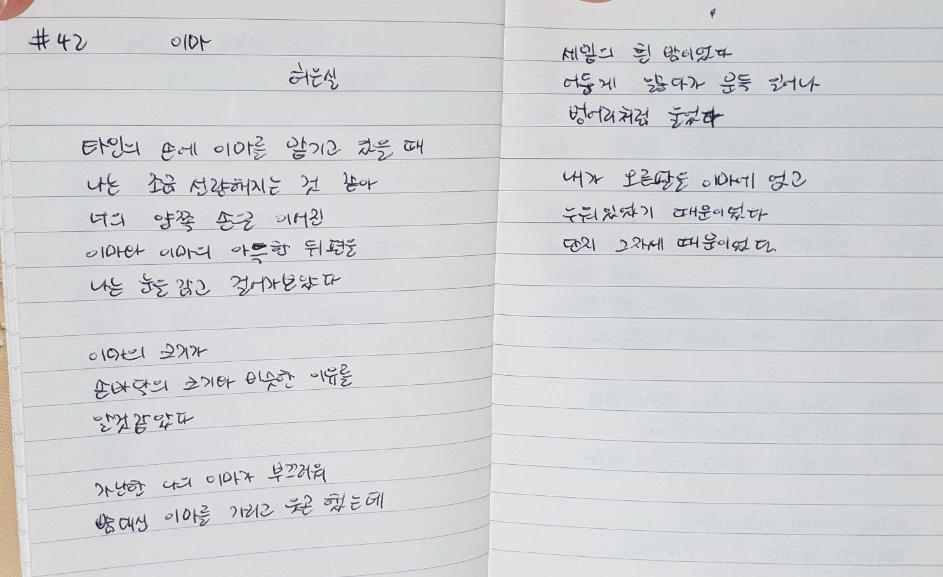 #42 이마
허은실
타인의 손에 이마를 맡기고 있을 때
나는 조금 선량해지는 것 같아
너의 양쪽 손으로 이어진
이마와 이마의 아득한 뒤편을
나는 눈을 감고 걸어가보았다
이마의 크기가
손바닥의 크기와 비슷한 이유를
알것같았다
가난한 나의 이마가 부끄러워
뺨대신 이마를 가리고 웃곤 했는데
세밑의 흰 밤이었다
어둡게 앓다가 문득 일어나
벙어리처럼 울었다
내가 오른팔을 이마에 얹고
누워있었기 때문이었다
단지 그자세 때문이었다.